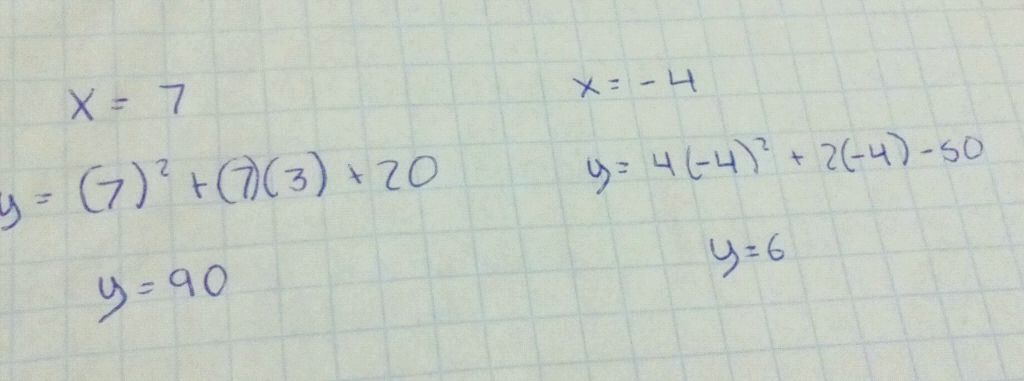 x = 7
y = (7)² + (7)(3) + 20
y = 90
x = - 4
y = 4(-4)² + 2(-4) - 50
y = 6